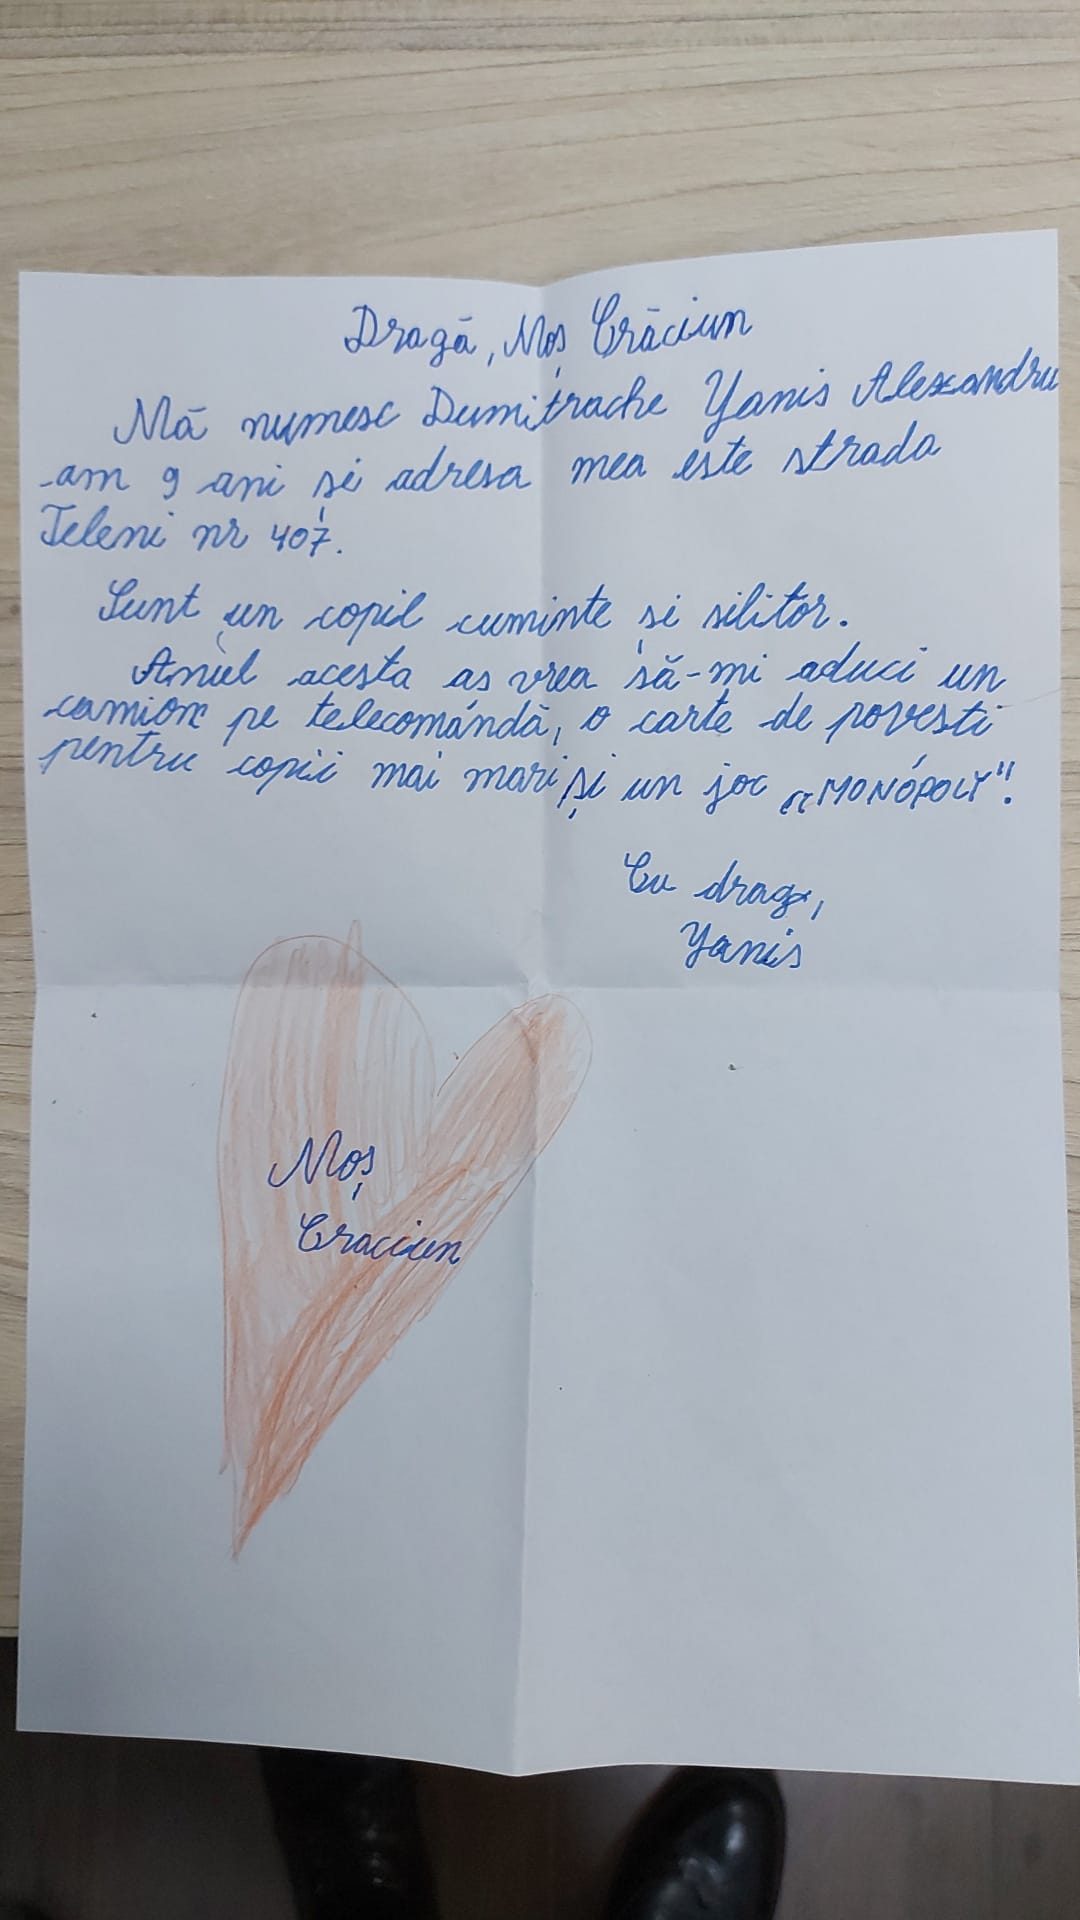 Dragă, Moș Crăciun
Mă numesc Dumitrache Yanis Alexandru
am 9 ani și adresa mea este strada
Teleni nr 407.
Sunt un copil cuminte și silitor.
Anul acesta as vrea să-mi aduci un
camion pe telecomandă, o carte de povesti
pentru copii mai mari și un joc „MONOPOLY".
Cu drag,
Yanis
Moș
Craciun